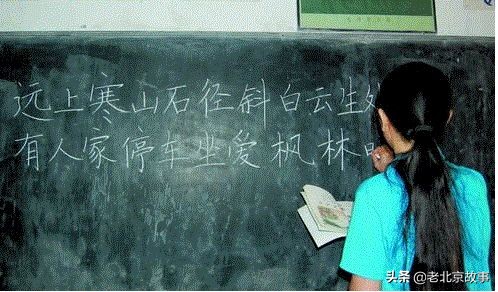 远上寒山石径斜白云生处
有人家停车坐爱枫林
头条 @老北京故事